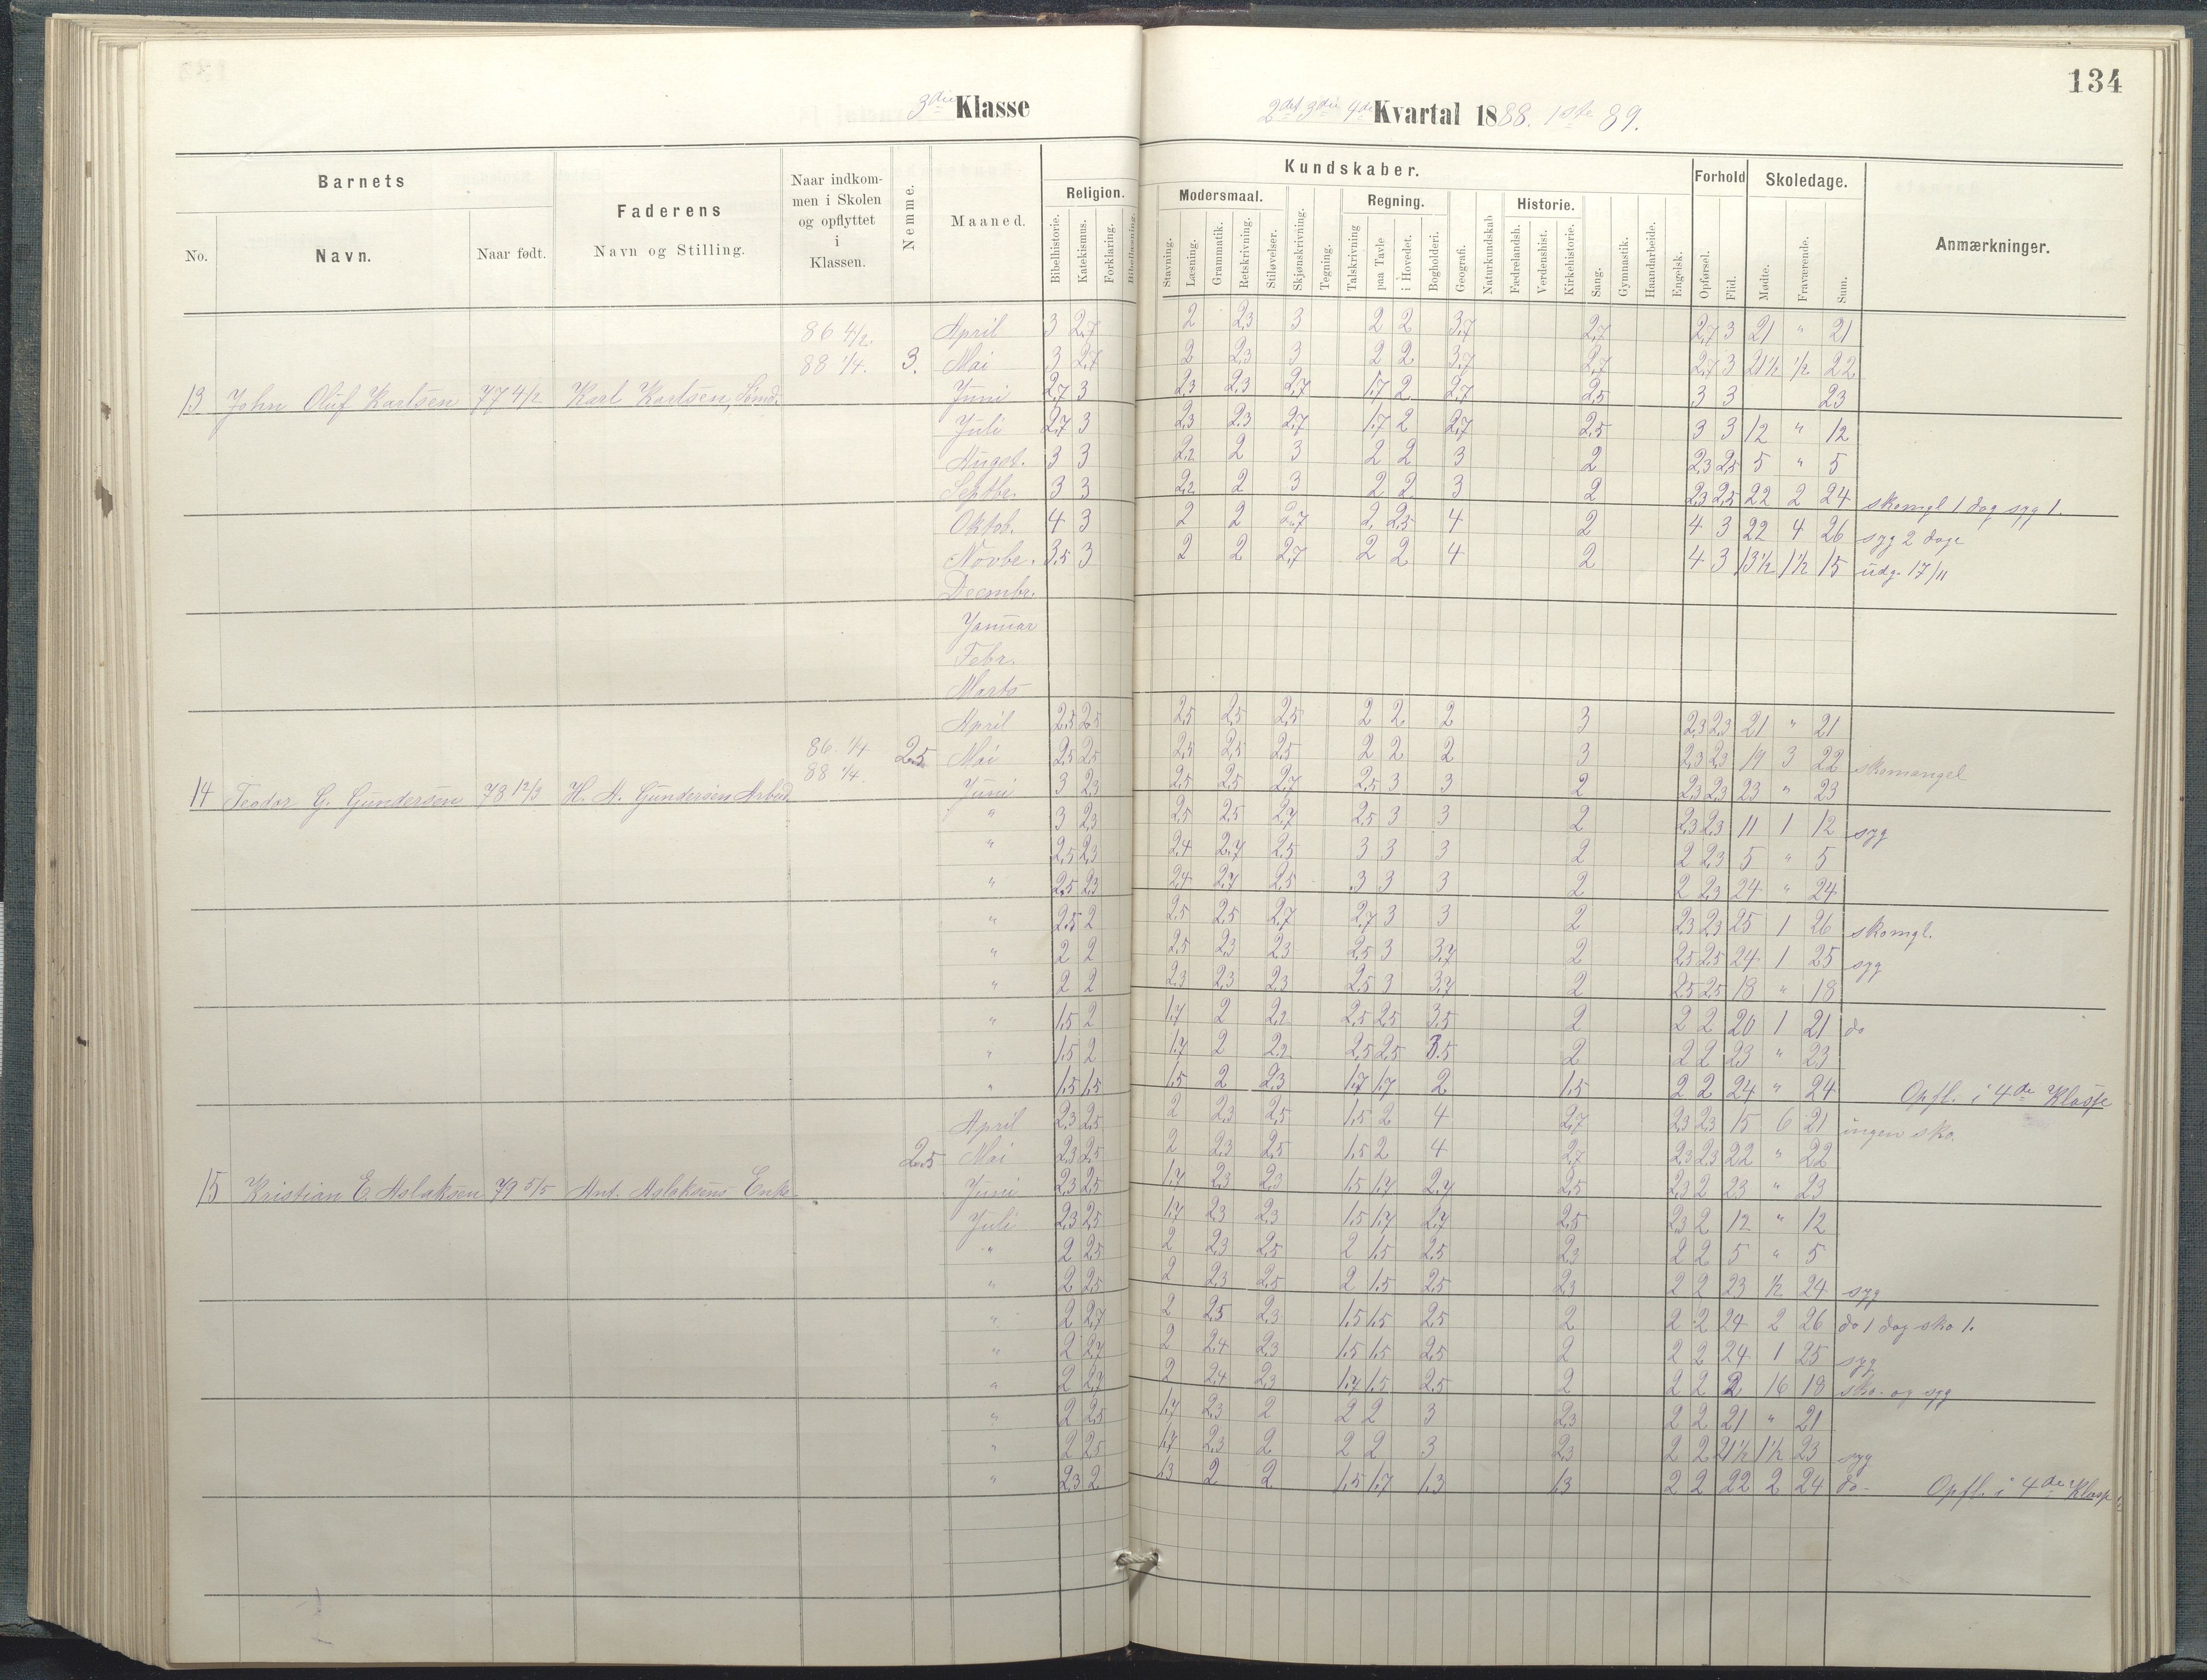 134
3die Klasse
2det 3die 4de Kvartal 1888. 1ste 89.
Barnets
No. Navn. Naar født.
Faderens
Navn og Stilling.
Naar indkommen i Skolen og opflyttet i Klassen.
Nemme.
Maaned.
Kundskaber.
Religion. Modersmaal. Regning. Historie.
Bibelhistorie. Katekismus. Forklaring. Bibellæsning. Stavning. Læsning. Grammatik. Retskrivning. Stiløvelser. Skjønskrivning. Tegning. Talskrivning paa Tavle i Hovedet. Bogholderi. Geografi. Naturkundskab Fædrelandsh. Verdenshist. Kirkehistorie. Sang. Gymnastik. Haandarbeide. Engelsk.
Forhold
Opførsel. Flid.
Skoledage.
Mødte. Fraværende. Sum.
Anmærkninger.
86 4/2. April 3 2,7 2 2,3 3 2 2 3,7 2,7 2,7 3 21 " 21
88 1/4. 3. Mai 3 2,7 2 2,3 3 2 2 3,7 2,7 2,7 3 21½ ½ 22
13 John Oluf Karlsen 77 4/2 Karl Karlsen, Sømd. Juni 2,7 3 2,3 2,3 2,7 1,7 2 2,7 2,5 3 3 23
Juli 2,7 3 2,3 2,3 2,7 1,7 2 2,7 2,5 3 3 12 " 12
Augst. 3 3 2,2 2 3 2 2 3 2 2,3 2,5 5 " 5
Septbr. 3 3 2,2 2 3 2 2 3 2 2,3 2,5 22 2 24 skomgl 1 dag syg 1.
Oktob. 4 3 2 2 2,7 2 2,5 4 2 4 3 22 4 26 syg 2 dage
Novbr. 3,5 3 2 2 2,7 2 2 4 2 4 3 13½ 1½ 15 udg. 17/11
Decembr.
Januar
Febr.
Marts
April 2,5 2,5 2,5 2,5 2,5 2 2 2 3 2,3 2,3 21 " 21
86. 1/4 2.5 Mai 2,5 2,5 2,5 2,5 2,5 2 2 2 3 2,3 2,3 19 3 22 skomangel
88 1/4.
14 Teodor G. Gundersen 78 12/3 H. A. Gundersen Arbeid. Juni 3 2,3 2,5 2,5 2,7 2,5 3 3 2 2,3 2,3 23 " 23
" 3 2,3 2,5 2,5 2,7 2,5 3 3 2 2,3 2,3 11 1 12 syg
" 2,5 2,3 2,4 2,7 2,5 3 3 3 2 2 2,3 5 " 5
" 2,5 2,3 2,4 2,7 2,5 3 3 3 2 2 2,3 24 " 24
" 2,5 2 2,5 2,5 2,7 2,7 3 3 2 2,3 2,3 25 1 26 skomgl.
" 2 2 2,5 2,3 2,3 2,5 3 3,7 2 2,5 2,5 24 1 25 syg
" 2 2 2,3 2,3 2,3 2,5 3 3,7 2 2,5 2,5 18 " 18
" 1,5 2 1,7 2 2,2 2,5 2,5 3,5 2 2 2 20 1 21 do
" 1,5 2 1,7 2 2,2 2,5 2,5 3.5 2 2 2 23 " 23
" 1,5 1,5 1,5 2 2,3 1,7 1,7 2 1,5 2 2 24 " 24 Opfl. i 4de Klasse
April 2,3 2,5 2 2,3 2,5 1,5 2 4 2,7 2,3 2,3 15 6 21 ingen sko.
2.5 Mai 2,3 2,5 2 2,3 2,5 1,5 2 4 2,7 2,3 2,3 22 " 22
15 Kristian E. Aslaksen 79 5/5 Ant. Aslaksens Enke. Juni 2,3 2,5 1,7 2,3 2,3 1,5 1,7 2,7 2,5 2,3 2 23 " 23
Juli 2,3 2,5 1,7 2,3 2,3 1,5 1,7 2,7 2,5 2,3 2 12 " 12
" 2 2,5 2 2,3 2,5 2 1,5 2,5 2,3 2 2 5 " 5
" 2 2,5 2 2,3 2,5 2 1,5 2,5 2,3 2 2 23 ½ 24 syg
" 2 2,7 2 2,5 2,3 1,5 1,5 2,5 2 2 2 24 2 26 do 1 dag sko 1.
" 2 2,7 2 2,4 2,3 1,5 1,5 2,5 2 2 2 24 1 25 syg
" 2 2,7 2 2,4 2,3 1,7 1,5 2,5 2 2 2 2 16 18 sko. og syg
" 2 2,5 1,7 2,3 2 2 2 3 2,3 2 2 21 " 21
" 2 2,5 1,7 2,3 2 2 2 3 2,3 2 2 21½ 1½ 23 syg
" 2,3 2 1,3 2 2 1,5 1,7 1,3 1,3 2 2 22 2 24 do- Opfl. i 4de Klasse